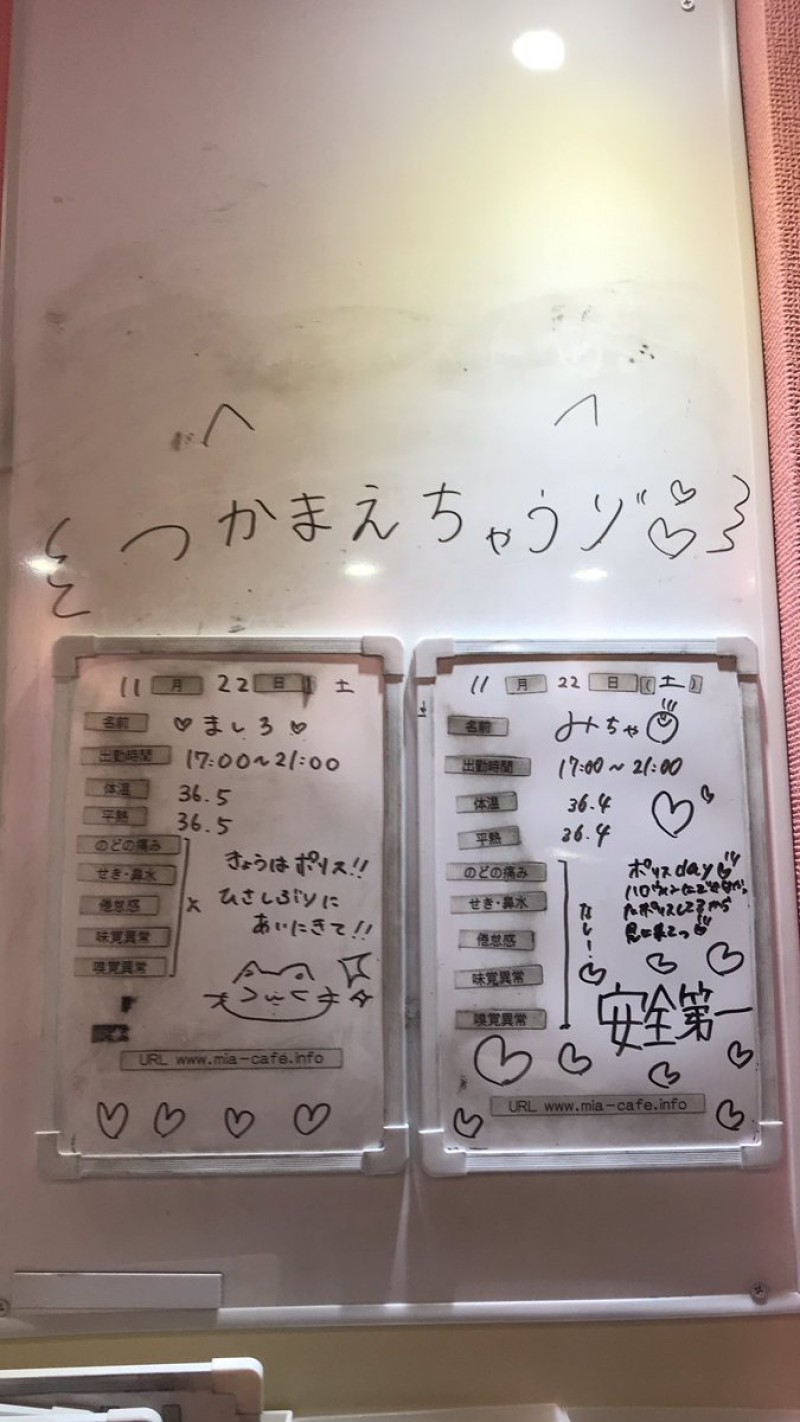 つかまえちゃうゾ♡♡
11月22日(土
名前 ♡ましろ♡
出勤時間 17:00〜21:00
体温 36.5
平熱 36.5
のどの痛み
せき・鼻水
倦怠感
味覚異常
嗅覚異常
×
きょうはポリス!!
ひさしぶりに
あいにきて!!
URL www.mia-cafe.info
11月22日(土)
名前 みちゃ
出勤時間 17:00〜21:00
体温 36.4
平熱 36.4
のどの痛み
せき・鼻水
倦怠感
味覚異常
嗅覚異常
なし!
ポリスday
見に来てっ
安全第一
URL www.mia-cafe.info